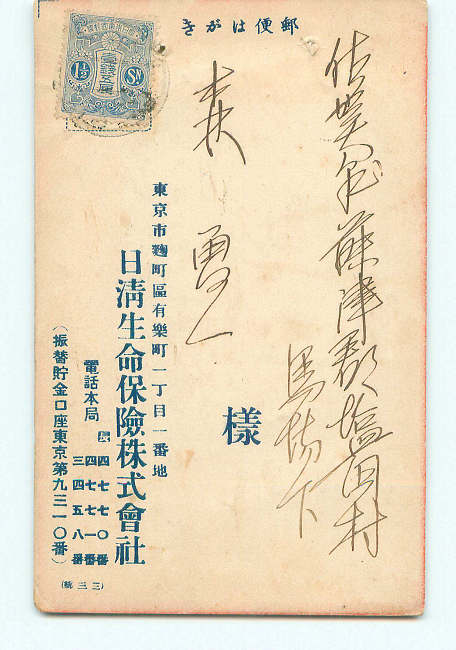 郵便はがき
佐賀縣藤津郡塩田村
馬場下
勇一
様
東京市麹町區有樂町一丁目一番地
日清生命保險株式會社
電話本局
長四七七〇番
四七七一番
三四五八番
(振替貯金口座東京第九三一〇番)
(三三統)
1½
SN